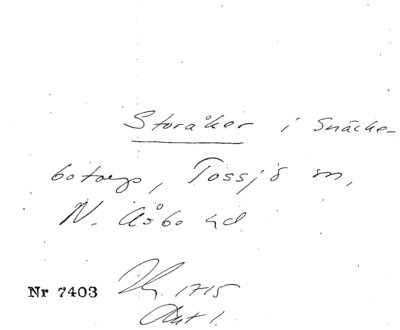 Storåker i Snäcke-
botorp, Tossjö sn,
N. Åsbo hd
Nr 7403
1715
Akt 1.